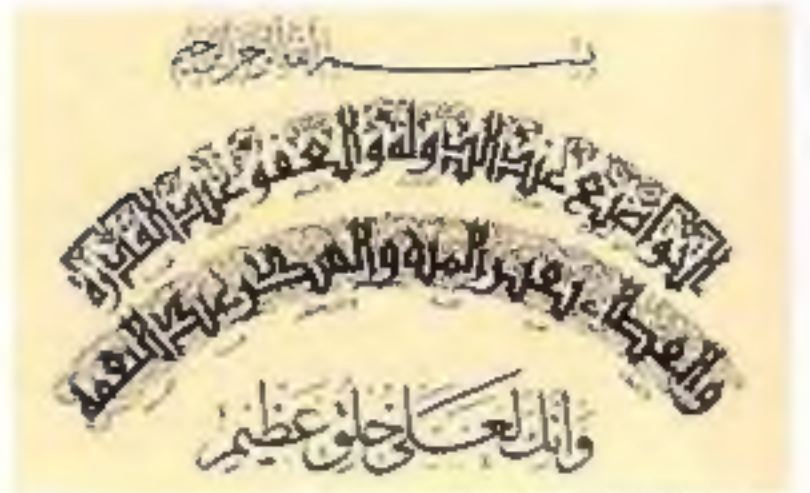 بسم الله الرحمن الرحيم
التواضع عند الدولة والعفو عند القدرة
والعطاء بغير المنة والعند النعمة
وانك لعلى خلق عظيم